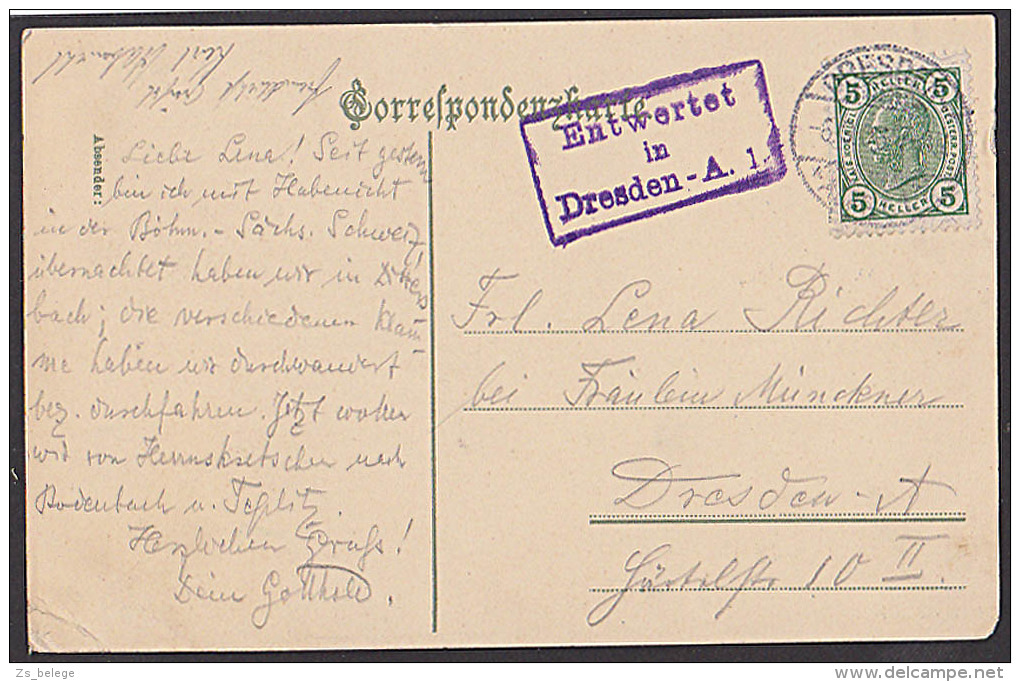 Correspondenzkarte
Absender:
Entwertet
in
Dresden-A. 1.
DRESD
5 HELLER 5
5 HELLER 5
Liebe Lena! Seit gestern
bin ich mit Habenicht
in der Böhm.- Sächs. Schweiz,
übernachtet haben wir in Ditters
bach; die verschiedenen Klam-
me haben wir durchwandert
bez. durchfahren. Jetzt wollen
wir von Herrnskretschen nach
Bodenbach u. Teplitz.
Herzlichen Gruß!
Dein Gotthold.
Karl Habenicht
Frl. Lena Richter
bei Fräulein Münckner
Dresden-A
10 II.
Zs_belege
delcampe.net